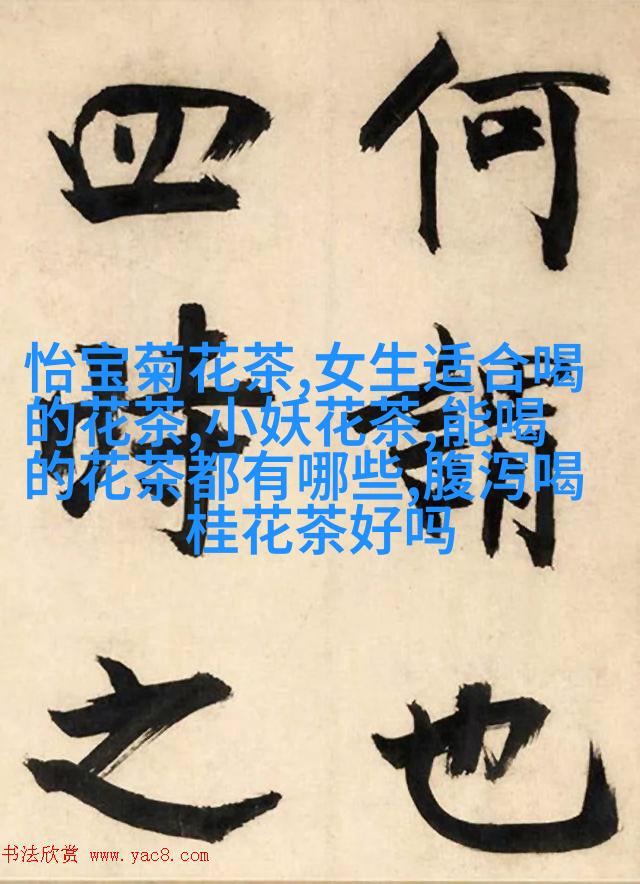 何謂也
四時之
怡宝菊花茶,女生适合喝
的花茶,小妖花茶,能喝
的花茶都有哪些,腹泻喝
桂花茶好吗
书法欣赏 www.yac8.com